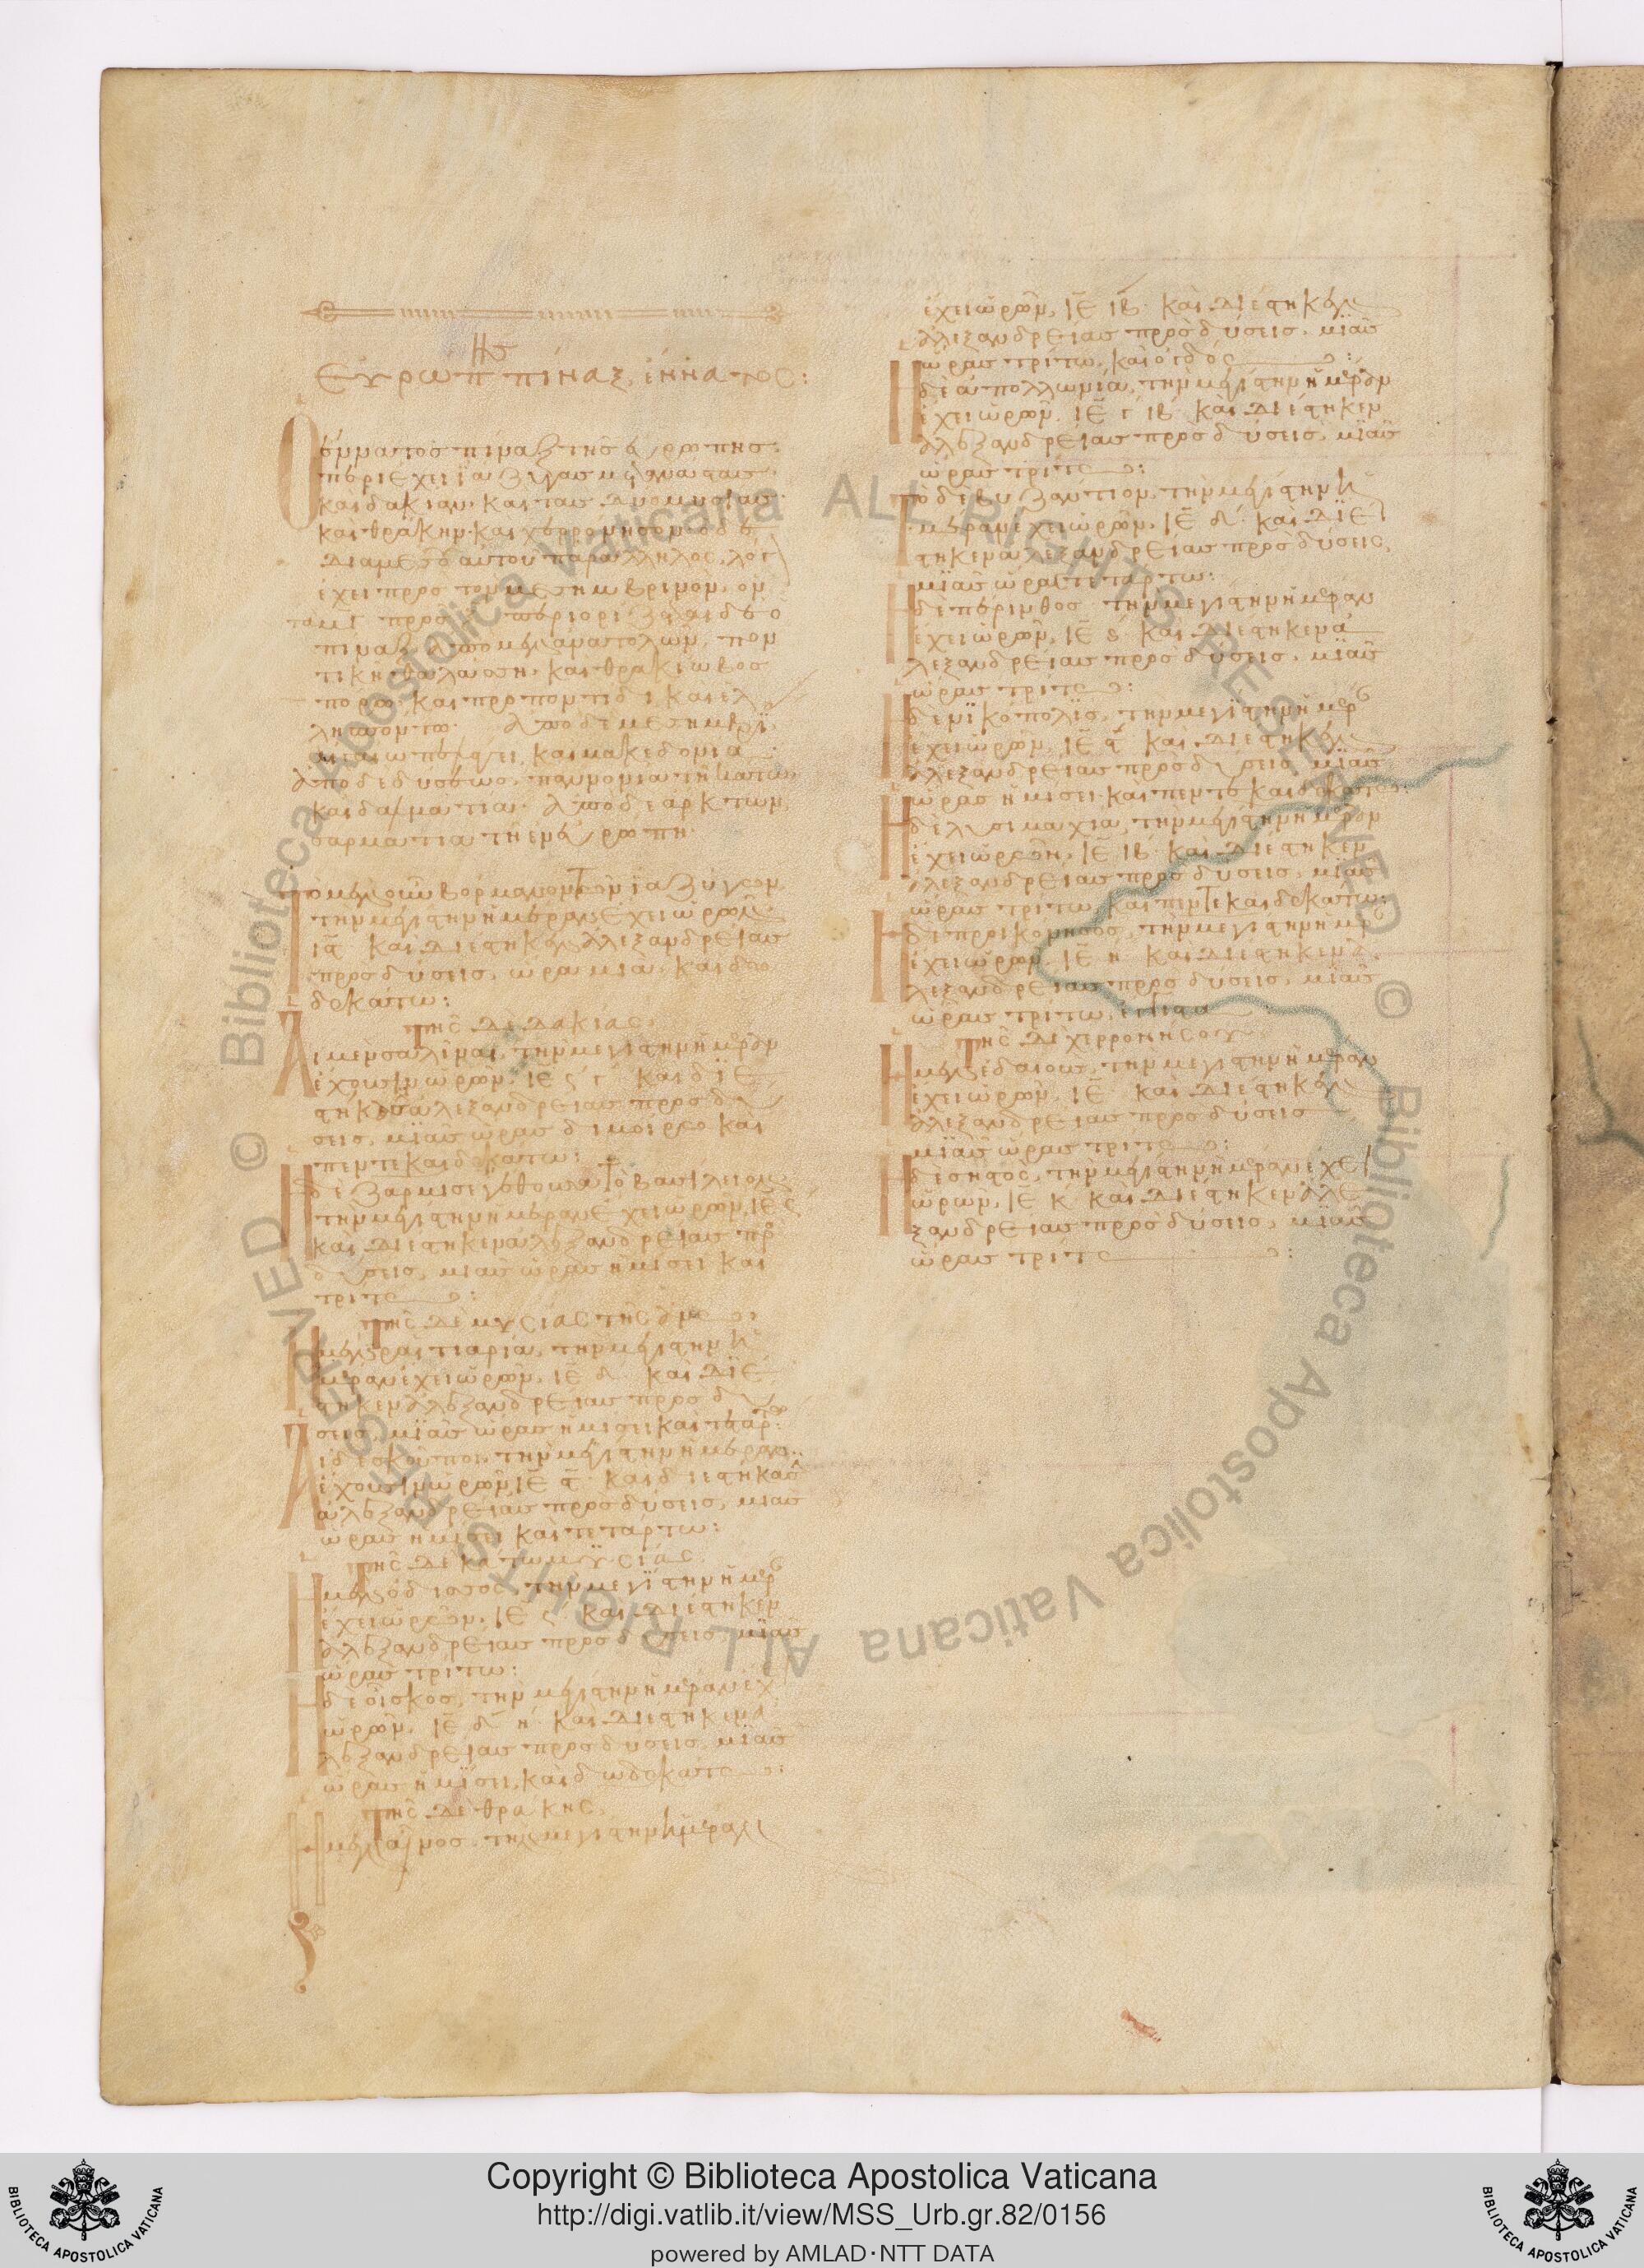 Εὐρώπ πίναξ ἔννατος:
Ο
ἔννατος πίναξ τῆς εὐρώπης
περιέχει ἰάζυγας μετανάστας
καὶ δακίαν· καὶ τὰς δύο μυσίας·
καὶ θράκην· καὶ χερρόνησον· ὁ δὲ
διαμέσου αὐτοῦ παράλληλος, λόγ
ἔχει πρὸς τὸν μεσημβρινὸν, ὃν
περιορίζεται δὲ ὁ
πίναξ ἀπὸ μὲν ἀνατολῶν, πον
τικῆ θαλάσση· καὶ θρακίω βοσ
πόρω· καὶ προποντίδι καὶ ἑλ
λησπόντω. ἀπὸ δὲ μεσημβρί
αιγαίω πελάγει καὶ μακεδονία
ἀπὸ δὲ δύσεως, παννονία τῆ κάτω
καὶ δαλματία· ἀπὸ δὲ ἄρκτων,
σαρματία τῆ ἐν εὐρώπη.
Τὸ μὲν οὖν βόρμανον τῶν ἰαζύγων
τὴν μεγίστην ἡμέραν ἔχει ὡρῶν
καὶ διέστηκεν ἀλεξανδρείας
πρὸς δύσεις, ὥρα μιᾶ· καὶ δω
δεκάτω:
Τῆς δὲ δακίας
Αἱ μὲν σαλῖναι, τὴν μεγίστην ἡμέραν
ἔχουσιν ὡρῶν, ΙΕ καὶ διέ
στηκεν ἀλεξανδρείας πρὸς δύ
σεις, μιᾶς ὥρας διμοίρω καὶ
πεντεκαιδεκάτω:
Η
δὲ ζαρμισεγέθουσα τὸ βασίλειον
τὴν μεγίστην ἡμέραν ἔχει ὡρῶν, ΙΕ
καὶ διέστηκεν ἀλεξανδρείας πρὸ
δύσεις, μιᾶς ὥρας ἡμίσει καὶ
τρίτω:
Τῆς δὲ μυσίας τῆς ἄνω
Η
μὲν ῥαιτιαρία, τὴν μεγίστην ἡ
μέραν ἔχει ὡρῶν, ΙΕ δ καὶ διέ
στηκεν ἀλεξανδρείας πρὸς δύ
σεις, μιᾶς ὥρας ἡμίσει καὶ τετάρτω:
Αἱ δὲ σκοῦποι, τὴν μεγίστην ἡμέραν
ἔχουσιν ὡρῶν, ΙΕ καὶ διέστηκας
ἀλεξανδρείας πρὸς δύσεις, μιᾶς
ὥρας ἡμίσει καὶ τετάρτω:
Τῆς δὲ κάτω μυσίας
Η
μὲν ὀδησσὸς, τὴν μεγίστην ἡμέρ
ἔχει ὡρῶν, ΙΕ καὶ διέστηκεν
ἀλεξανδρείας πρὸς δύσεις, μιᾶς
ὥρας τρίτω:
Η
δὲ οἶσκος, τὴν μεγίστην ἡμέραν ἔχ
ὡρῶν, ΙΕ δ η καὶ διέστηκεν ἀ
λεξανδρείας πρὸς δύσεις, μιᾶς
ὥρας ἡμίσει, καὶ δωδεκάτω:
Τῆς δὲ θράκης
Η
μὲν αἶνος, τὴν μεγίστην ἡμέραν
ἔχει ὡρῶν, ΙΕ ΙΒ καὶ διέστηκεν
ἀλεξανδρείας πρὸς δύσεις, μιᾶς
ὥρας τρίτω,
Η
δὲ ἀπολλωνία, τὴν μεγίστην ἡμέραν
ἔχει ὡρῶν, ΙΕ ΙΒ καὶ διέστηκεν
ἀλεξανδρείας πρὸς δύσεις, μιᾶς
ὥρας τρίτω:
Τὸ δὲ βυζάντιον, τὴν μεγίστην ἡ
μέραν ἔχει ὡρῶν, ΙΕ δ καὶ διέ
στηκεν ἀλεξανδρείας πρὸς δύσεις,
μιᾶς ὥρας τετάρτω:
Η
δὲ πέρινθος, τὴν μεγίστην ἡμέραν
ἔχει ὡρῶν, ΙΕ δ καὶ διέστηκεν ἀ
λεξανδρείας πρὸς δύσεις, μιᾶς
ὥρας τρίτω:
Η
δὲ νικόπολις, τὴν μεγίστην ἡμέρ
ἔχει ὡρῶν, ΙΕ καὶ διέστηκεν
ἀλεξανδρείας πρὸς δύσεις, μιᾶς
ὥρας ἡμίσει· καὶ πεντεκαιδεκάτω:
Η
δὲ λυσιμαχία, τὴν μεγίστην ἡμέραν
ἔχει ὡρῶν, ΙΕ ΙΒ καὶ διέστηκεν
ἀλεξανδρείας πρὸς δύσεις, μιᾶς
ὥρας τρίτω, καὶ πεντεκαιδεκάτω:
Η
δὲ προικόνησος, τὴν μεγίστην ἡμ
ἔχει ὡρῶν, ΙΕ η καὶ διέστηκεν ἀ
λεξανδρείας πρὸς δύσεις, μιᾶς
ὥρας τρίτω,
Τῆς δὲ χερρονήσου
Η
μὲν ἐλαιοῦς, τὴν μεγίστην ἡμέραν
ἔχει ὡρῶν, ΙΕ καὶ διέστηκεν
ἀλεξανδρείας πρὸς δύσεις
μιᾶς ὥρας τρίτω:
Η
δὲ σηστὸς, τὴν μεγίστην ἡμέραν ἔχει
ὡρῶν, ΙΕ καὶ διέστηκεν ἀλε
ξανδρείας πρὸς δύσεις, μιᾶς
ὥρας τρίτω:
© Biblioteca Apostolica Vaticana ALL RIGHTS RESERVED © Biblioteca Apostolica Vaticana ALL RIGHTS RESERVED
Copyright © Biblioteca Apostolica Vaticana
http://digi.vatlib.it/view/MSS_Urb.gr.82/0156
powered by AMLAD·NTT DATA
BIBLIOTECA APOSTOLICA VATICANA
BIBLIOTECA APOSTOLICA VATICANA